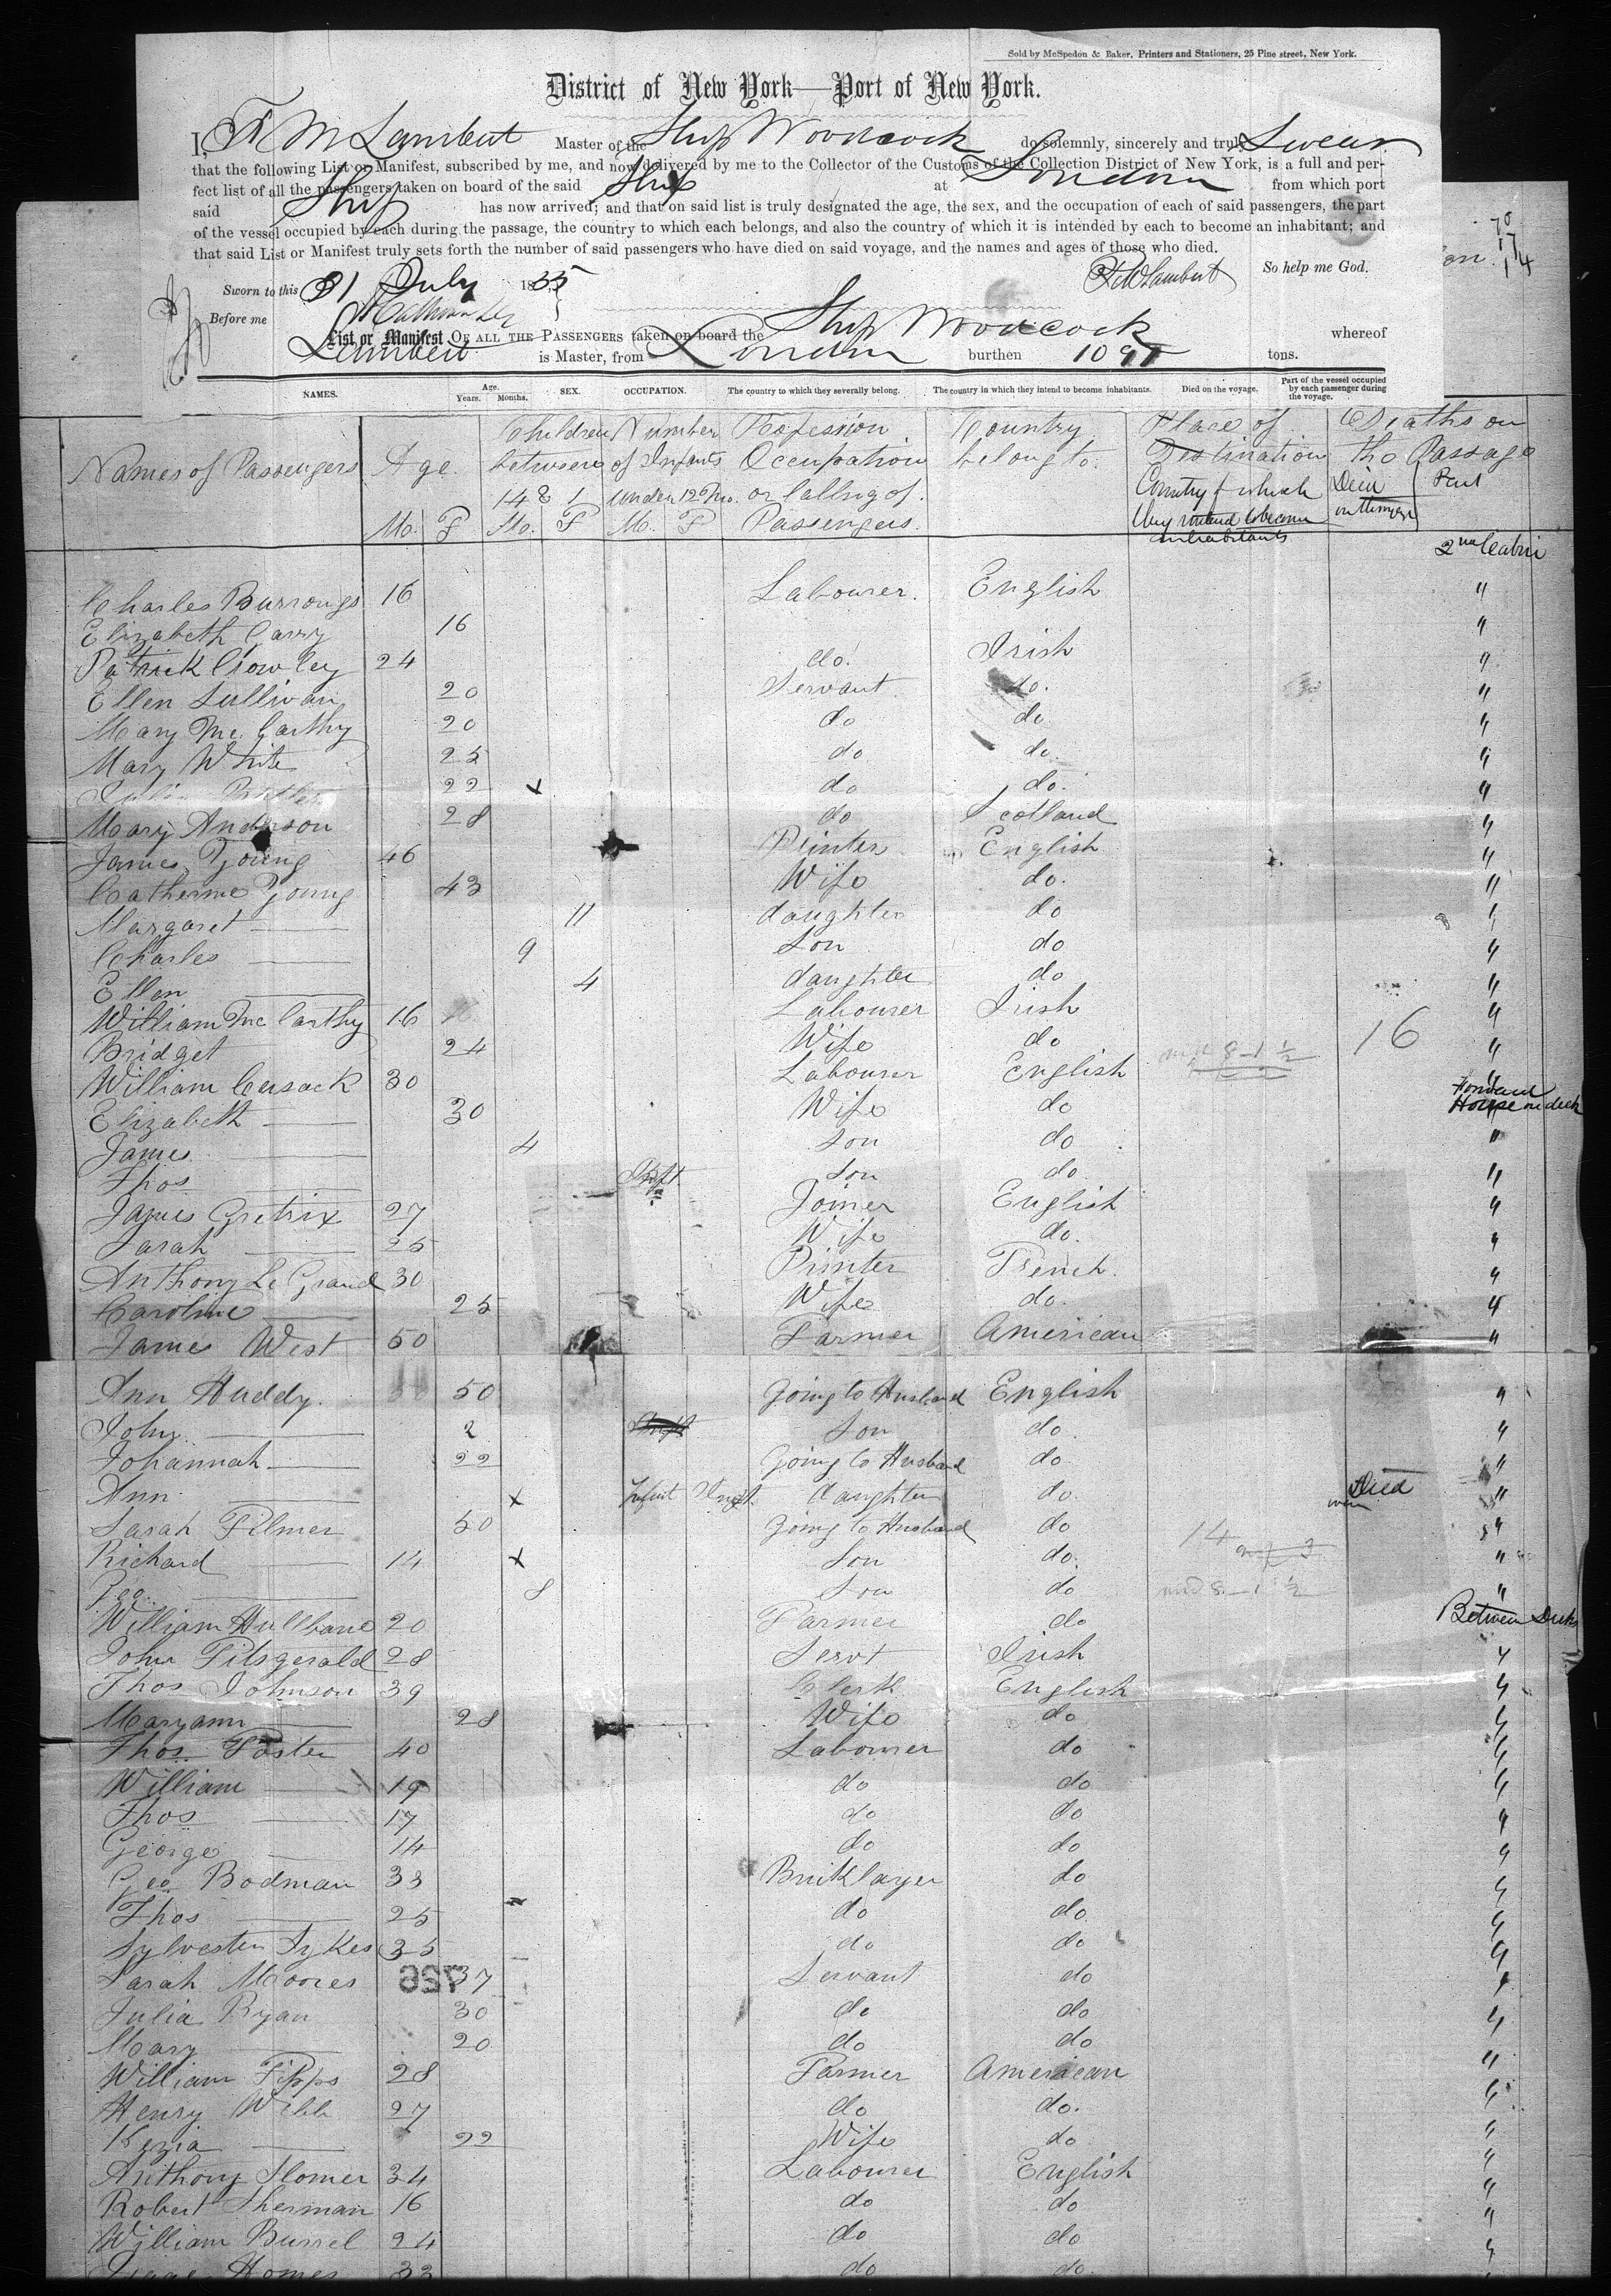 Sold by McSpedon & Baker, Printers and Stationers, 25 Pine street, New York.
District of New York—Port of New York.
I, Lambert Master of the Ship Woodcock do solemnly, sincerely and truly Swear
that the following List or Manifest, subscribed by me, and now delivered by me to the Collector of the Customs of the Collection District of New York, is a full and per-
fect list of all the passengers taken on board of the said Ship at London from which port
said Ship has now arrived; and that on said list is truly designated the age, the sex, and the occupation of each of said passengers, the part
of the vessel occupied by each during the passage, the country to which each belongs, and also the country of which it is intended by each to become an inhabitant; and
that said List or Manifest truly sets forth the number of said passengers who have died on said voyage, and the names and ages of those who died.
Lambert So help me God.
Sworn to this 31 July 1855
Before me
List or Manifest OF ALL THE PASSENGERS taken on board the Ship Woodcock whereof
Lambert is Master, from London burthen tons.
NAMES. Age. Years. Months. SEX. OCCUPATION. The country to which they severally belong. The country in which they intend to become inhabitants. Died on the voyage. Part of the vessel occupied by each passenger during the voyage.
Names of Passengers Age Children between 14 & 1 Number of Infants under 12 Mo. Profession Occupation or Calling of Passengers. Country belong to. Place of Destination Deaths on the Passage
M. F M. F M. F
Country of which they intend to become inhabitants Died on the voyage Part
2nd Cabin
Charles Burrongs 16 Labourer. English "
Elizabeth Garry 16 "
Patrick Crowley 24 do. Irish "
Ellen Sullivan 20 Servant do. "
Mary Mc Carthy 20 do do "
Mary White 25 do do. "
22 x do do. "
Mary Anderson 28 do Scotland "
James Young 46 Printer English "
Catherine Young 43 Wife do. "
Margaret — 11 daughter do "
Charles — 9 Son do "
Ellen — 4 daughter do "
William Mc Carthy 16 Labourer Irish "
Bridget — 24 Wife do 16 "
William Cusack 30 Labourer English "
Forward House on deck
Elizabeth — 30 Wife do "
James — 4 Son do "
Thos — Inft Son do "
James Gretrix 27 Joiner English "
Sarah — 25 Wife do. "
Anthony Le Grand 30 Printer French. "
Caroline — 25 Wife do. "
James West 50 Farmer American "
Ann Huddy. 50 Going to Husband English "
John — 2 Son do. "
Johannah — 22 Going to Husband do "
Ann — x Infant Inft. daughter do. Died "
Sarah Filmer 50 Going to Husband do 14 "
Richard — 14 x Son do. "
Geo — 8 Son do "
William Hullbane 20 Farmer do Between Decks
John Fitsgerald 28 Servt Irish "
Thos Johnson 39 Clerk English "
Maryann — 28 Wife do "
Thos Foster 40 Labourer do "
William — 19 do do "
Thos — 17 do do "
George — 14 do do "
Geo Bodman 33 Bricklayer do "
Thos — 25 do do "
Sylvester Sykes 35 do do "
Sarah Moores 37 Servant do "
Julia Ryan 30 do do "
Mary — 20 do do "
William Fipps 28 Farmer American "
Henry Webb 27 do do. "
Kezia — 22 Wife do "
Anthony Homer 34 Labourer English "
Robert Sherman 16 do do "
William Burrel 24 do do "
Isaac Homes 33 do do.